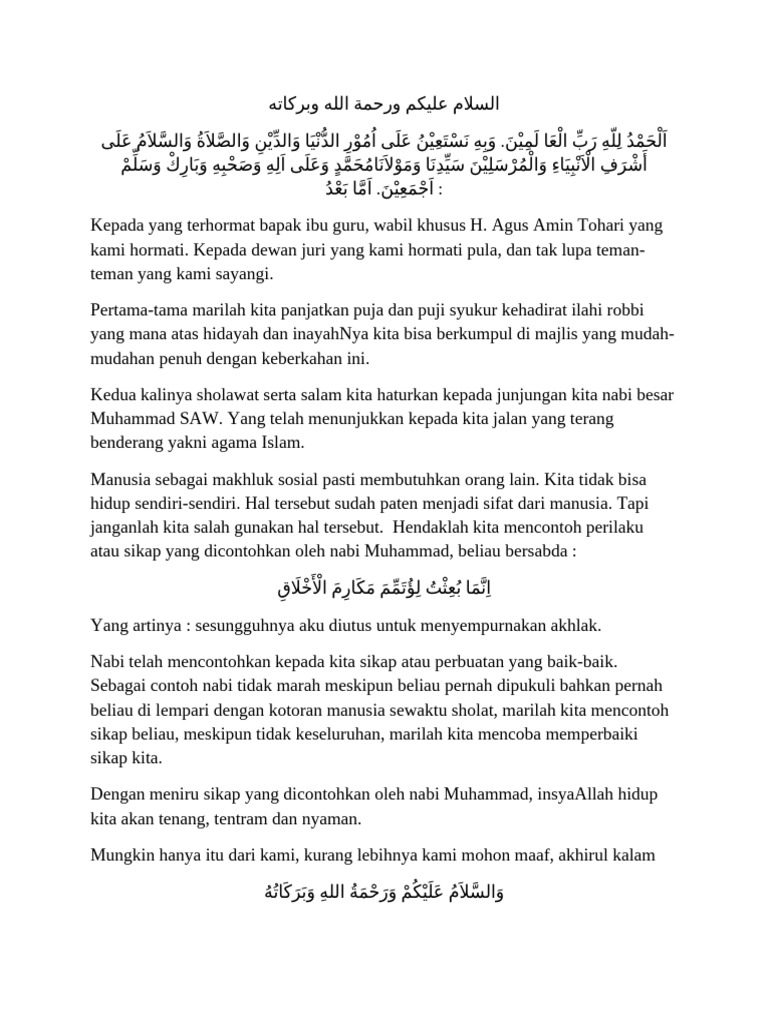 السلام عليكم ورحمة الله وبركاته
اَلْحَمْدُ لِلّٰهِ رَبِّ الْعَا لَمِيْنَ. وَبِهِ نَسْتَعِيْنُ عَلَى اُمُوْرِ الدُّنْيَا وَالدِّيْنِ وَالصَّلاَةُ وَالسَّلاَمُ عَلَى
أَشْرَفِ الْاَنْبِيَاءِ وَالْمُرْسَلِيْنَ سَيِّدِنَا وَمَوْلاَنَامُحَمَّدٍ وَعَلَى اَلِهِ وَصَحْبِهِ وَبَارِكْ وَسَلِّمْ
اَجْمَعِيْنَ. اَمَّا بَعْدُ :
Kepada yang terhormat bapak ibu guru, wabil khusus H. Agus Amin Tohari yang
kami hormati. Kepada dewan juri yang kami hormati pula, dan tak lupa teman-
teman yang kami sayangi.
Pertama-tama marilah kita panjatkan puja dan puji syukur kehadirat ilahi robbi
yang mana atas hidayah dan inayahNya kita bisa berkumpul di majlis yang mudah-
mudahan penuh dengan keberkahan ini.
Kedua kalinya sholawat serta salam kita haturkan kepada junjungan kita nabi besar
Muhammad SAW. Yang telah menunjukkan kepada kita jalan yang terang
benderang yakni agama Islam.
Manusia sebagai makhluk sosial pasti membutuhkan orang lain. Kita tidak bisa
hidup sendiri-sendiri. Hal tersebut sudah paten menjadi sifat dari manusia. Tapi
janganlah kita salah gunakan hal tersebut.  Hendaklah kita mencontoh perilaku
atau sikap yang dicontohkan oleh nabi Muhammad, beliau bersabda :
اِنَّمَا بُعِثْتُ لِؤُتَمِّمَ مَكَارِمَ الْأَخْلَاقِ
Yang artinya : sesungguhnya aku diutus untuk menyempurnakan akhlak.
Nabi telah mencontohkan kepada kita sikap atau perbuatan yang baik-baik.
Sebagai contoh nabi tidak marah meskipun beliau pernah dipukuli bahkan pernah
beliau di lempari dengan kotoran manusia sewaktu sholat, marilah kita mencontoh
sikap beliau, meskipun tidak keseluruhan, marilah kita mencoba memperbaiki
sikap kita.
Dengan meniru sikap yang dicontohkan oleh nabi Muhammad, insyaAllah hidup
kita akan tenang, tentram dan nyaman.
Mungkin hanya itu dari kami, kurang lebihnya kami mohon maaf, akhirul kalam
وَالسَّلاَمُ عَلَيْكُمْ وَرَحْمَةُ اللهِ وَبَرَكَاتُهُ